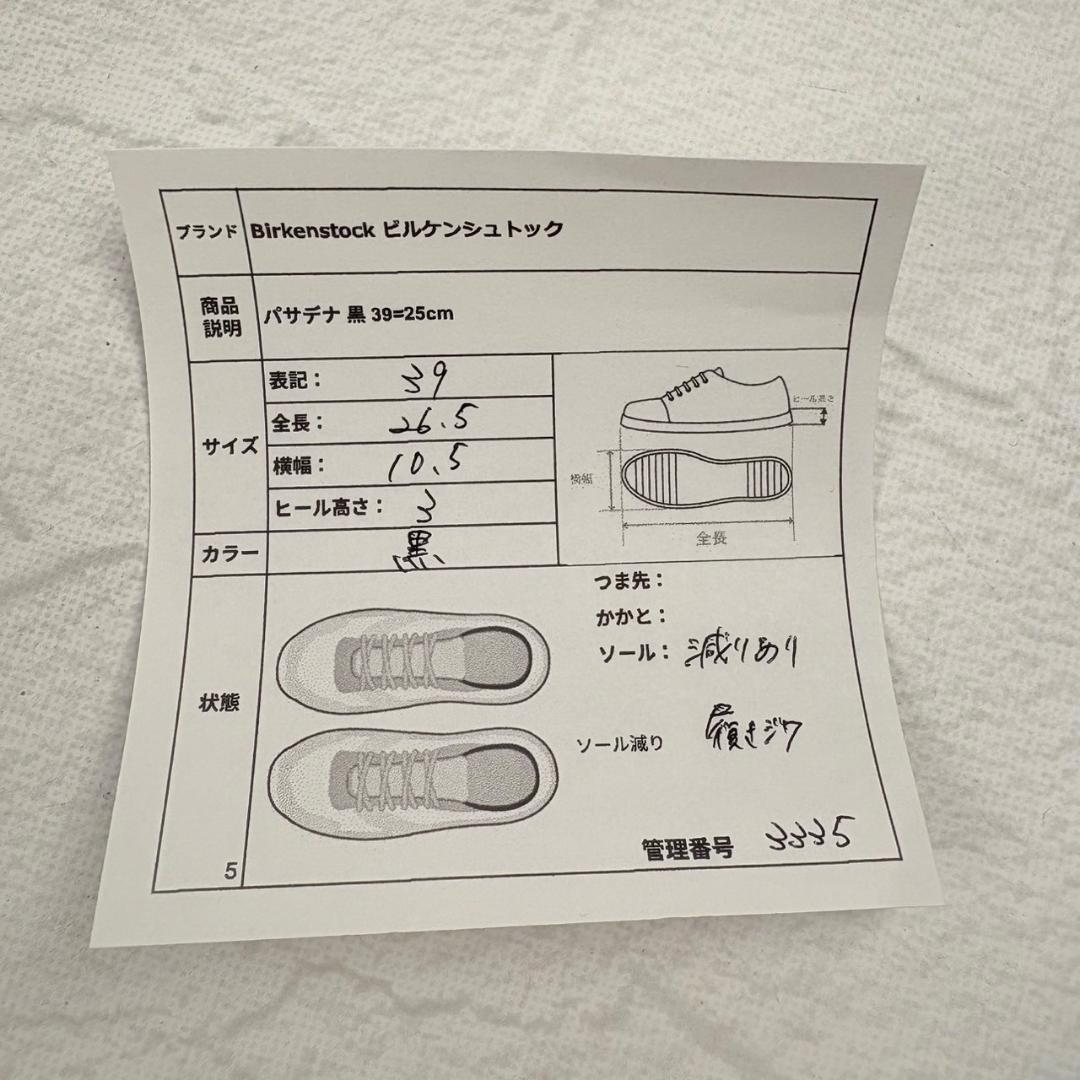 ブランド Birkenstock ビルケンシュトック
商品
説明
パサデナ 黒 39=25cm
サイズ
表記： 39
全長： 26.5
横幅： 10.5
ヒール高さ： 3
ヒール高さ
横幅
全長
カラー 黒
状態
つま先：
かかと：
ソール： 減りあり
ソール減り 履きジワ
管理番号 3335
5